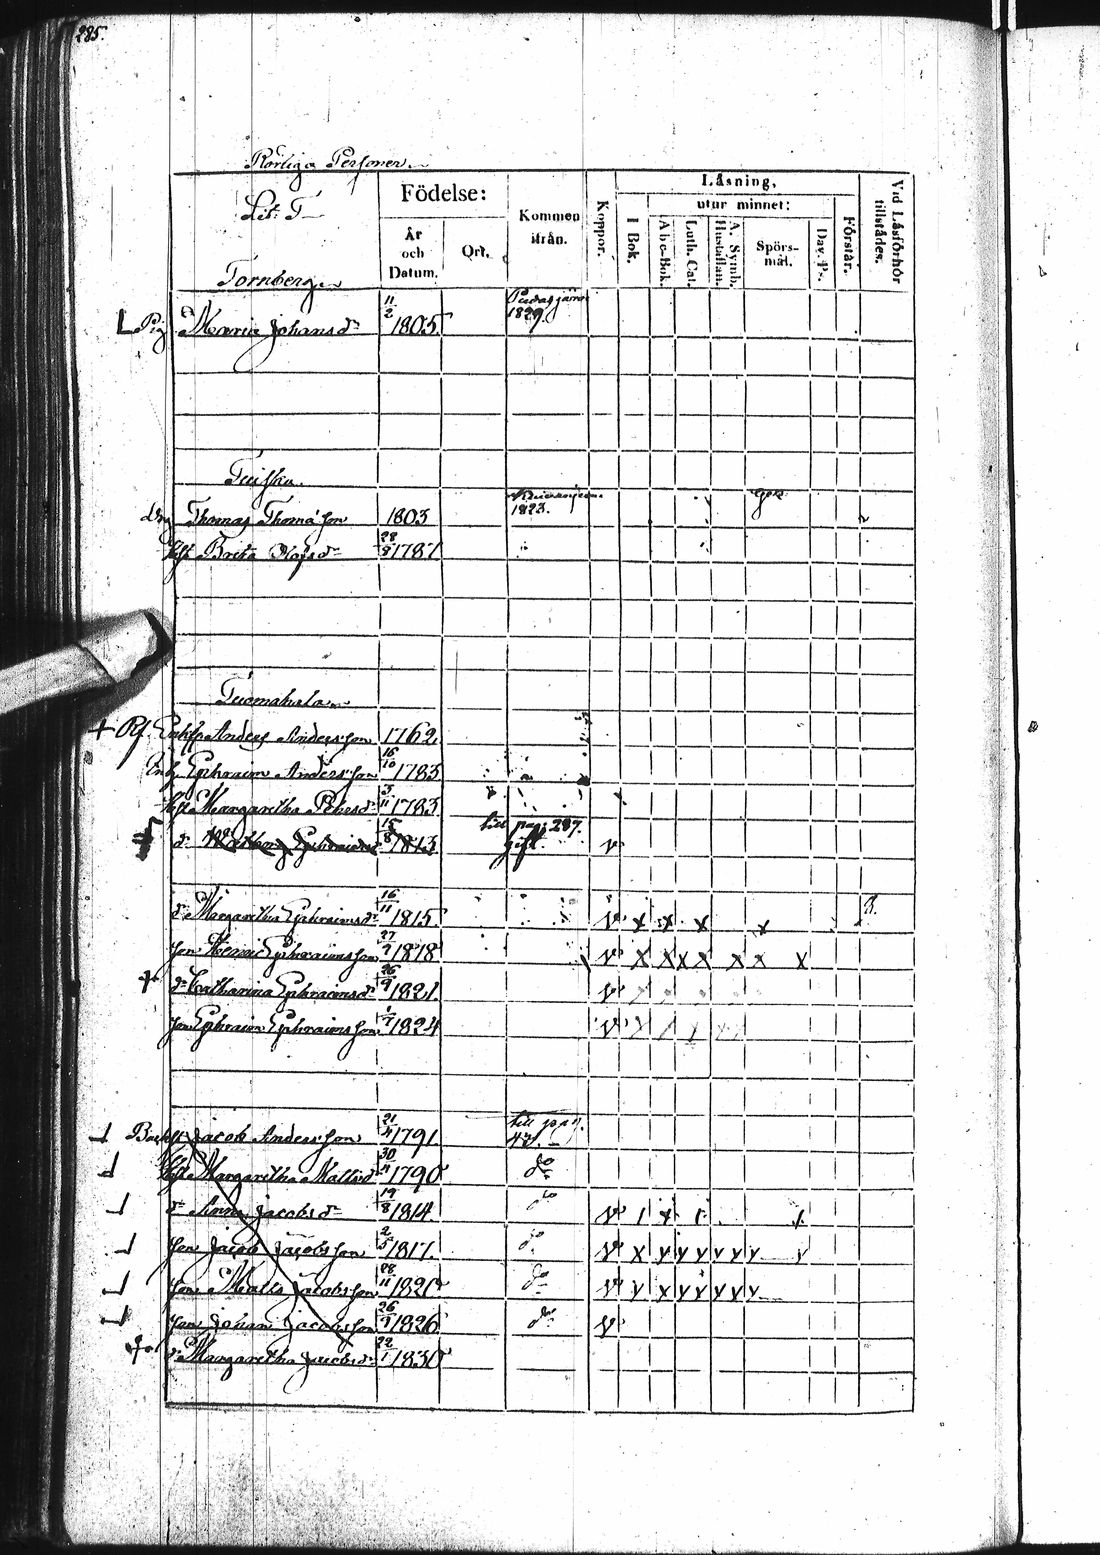 285.
Rörliga Personer.
Litt. T
Födelse:
År och Datum.
Ort.
Kommen ifrån.
Koppor.
Läsning,
I Bok.
utur minnet:
Abc-Bok.
Luth. Cat.
A. Symb. Hustaflan.
Spörsmål.
Dav. Ps.
Förstår.
Vid Läsförhör tillstädes.
Tornberg
L Pig Maria Johansdr 11/2 1805. 1829.
Tuisku
drg Thomas Thomasson 1803 1823.
Hust Brita Olofsdr 28/8 1787
Tuomakala
+ Anders Andersson 1762
Ephraim Andersson 16/10 1783
Hust Margaretha Petersdr 5/11 1783
dr Ephraimsdr 15/8 1813 till pag. 287. gift. v
dr Margaretha Ephraimsdr 16/11 1815 v x x x x
son Ephraimsson 27/2 1818 v x x x x x x x
+ dr Catharina Ephraimsdr 26/9 1821 v
son Ephraim Ephraimsson 1/7 1824 v
Jacob Andersson 21/4 1791 till pag. 43.
Hust Margaretha Mattsdr 30/11 1790 do
dr Anna Jacobsdr 19/8 1814 do v
son Jacob Jacobsson 2/5 1817. do v
son Matts Jacobsson 28/11 1820 do v
son Johan Jacobsson 26/9 1826 do v
dr Margaretha Jacobsdr 22/1 1830